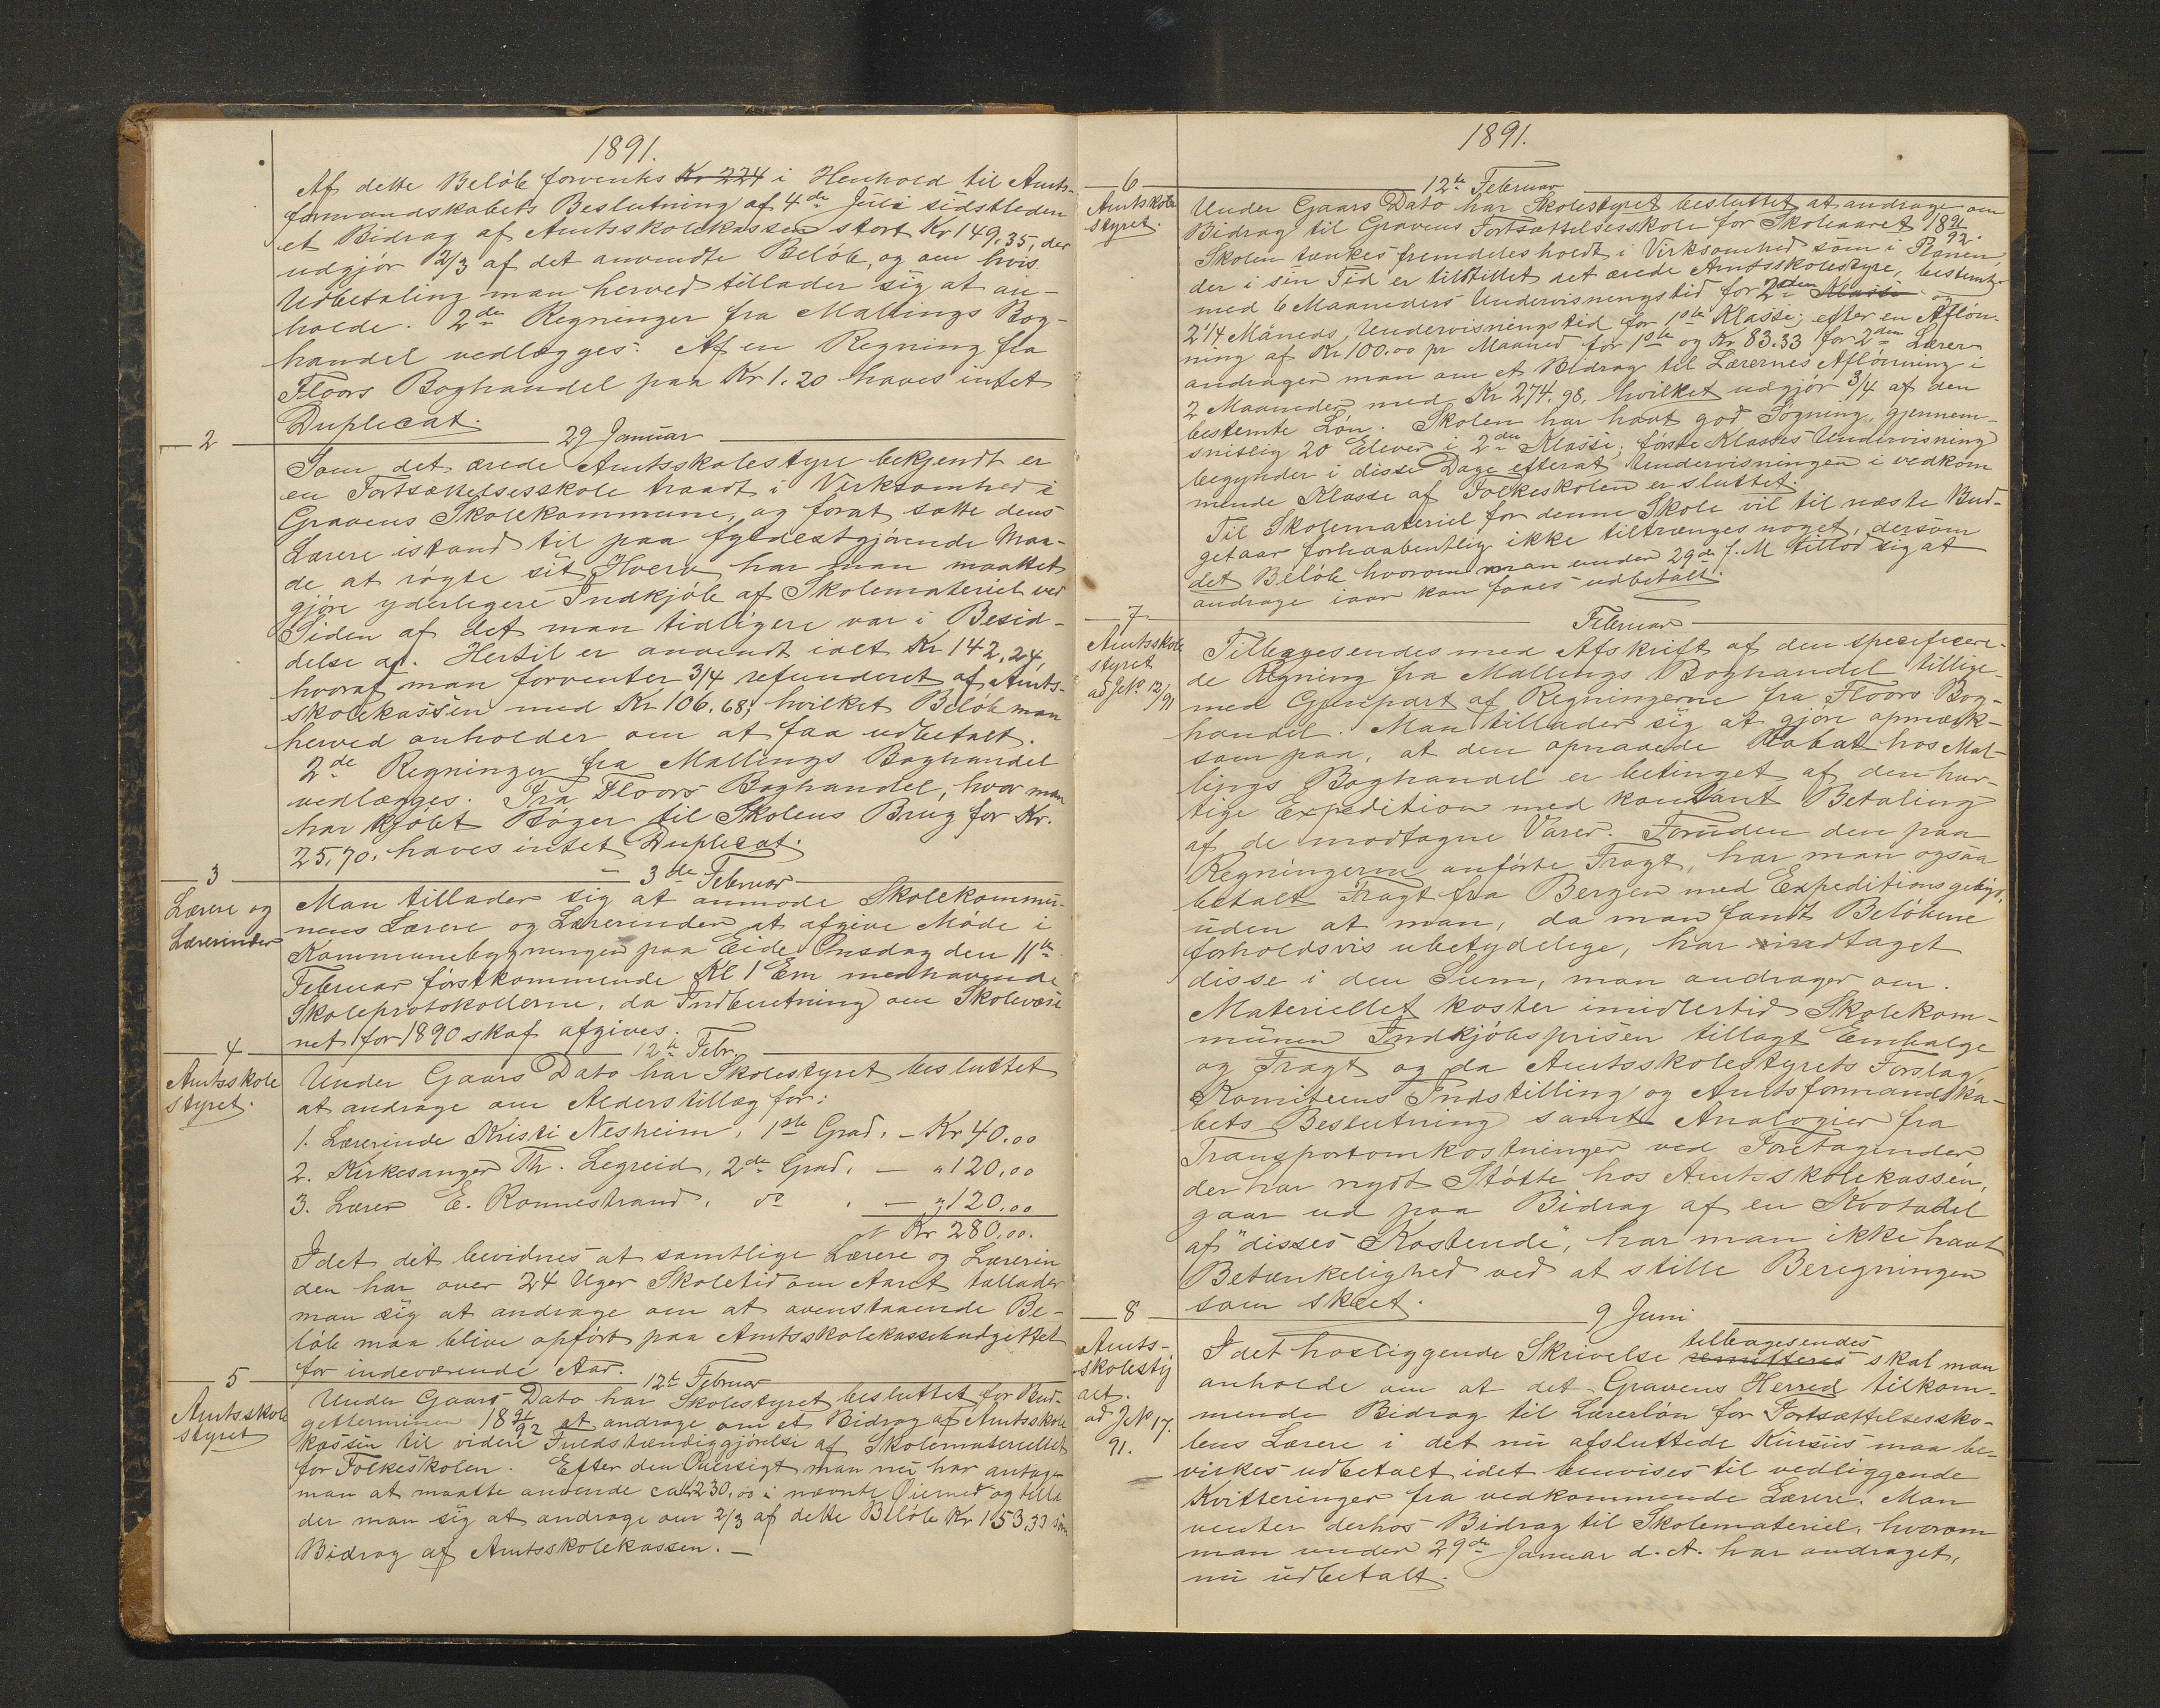 1891.
Af dette Beløb forventes Kr 224 i Henhold til Amts-
formandskabets Beslutning af 4de Juli sidstleden
et Bidrag af Amtsskolekassen stort Kr 149.35, der
udgjør 2/3 af det anvendte Beløb, og om hvis
Udbetaling man herved tillader sig at an-
holde. 2de Regninger fra Mallings Bog-
handel vedlægges. Af en Regning fra
Floors Boghandel paa Kr 1.20 haves intet
Duplicat.
2
29 Januar
Som det ærede Amtsskolestyre bekjendt er
en Fortsættelsesskole traadt i Virksomhed i
Gravens Skolekommune, og forat sætte dens
Lærere istand til paa fyldestgjørende Maa-
de at røgte sit Hverv har man maattet
gjøre yderligere Indkjøb af Skolemateriel ved
Siden af det man tidligere var i Besid-
delse af. Hertil er anvendt ialt Kr 142,24,
hvoraf man forventer 3/4 refunderet af Amts-
skolekassen med Kr 106.68, hvilket Beløb man
herved anholder om at faa udbetalt.
2de Regninger fra Mallings Boghandel
vedlægges. Fra Floors Boghandel, hvor man
har kjøbt Bøger til Skolens Brug for Kr.
25,70, haves intet Duplicat.
3
3de Februar
Lærere og
Lærerinder
Man tillader sig at anmode Skolekommu-
nens Lærere og Lærerinder at afgive Møde i
Kommunebygningen paa Eide Onsdag den 11te
Februar førstkommende Kl 1 Em medhavende
Skoleprotokollerne, da Indberetning om Skolevæse
net for 1890 skal afgives.
4
12te Febr.
Amtsskole
styret.
Under Gaars Dato har Skolestyret besluttet
at andrage om Alderstillæg for:
1. Lærerinde Kristi Nesheim, 1ste Grad, - Kr 40.00
2. Kirkesanger Th. Legreid, 2de Grad, — " 120,00
3. Lærer E. Ronnestrand, do , — " 120,00
Kr 280,00.
Idet det bevidnes at samtlige Lærere og Lærerin
den har over 24 Uger Skoletid om Aaret tillader
man sig at andrage om at ovenstaaende Be-
løb maa blive opført paa Amtsskolekassebudgettet
for indeværende Aar.
5
12te Februar
Amtsskole
styret
Under Gaars Dato har Skolestyret besluttet for Bud-
getterminen 18 91/92 at andrage om et Bidrag af Amtsskole
kassen til videre Fuldstændiggjørelse af Skolemateriellet
for Folkeskolen. Efter den Oversigt man nu har antager
man at maatte anvende ca Kr 230.00 i nævnte Øiemed og tilla
der man sig at andrage om 2/3 af dette Beløb Kr 153.33 som
Bidrag af Amtsskolekassen. —
1891.
6
12te Februar
Amtskole
styret.
Under Gaars Dato har Skolestyret besluttet at andrage om
Bidrag til Gravens Fortsættelsesskole for Skoleaaret 18 91/92.
Skolen tænkes fremdeles holdt i Virksomhed som i Planen,
der i sin Tid er tilstillet det ærede Amtsskolestyre, bestemt
med 6 Maaneders Undervisningstid for 2den Klasse og
2 1/4 Måneds Undervisningstid for 1ste Klasse; efter en Afløn-
ning af Kr 100.00 pr Maaned for 1ste og Kr 83.33 for 2den Lærer
andrager man om et Bidrag til Lærernes Aflønning i
2 Maaneder med Kr 274.98, hvilket udgjør 3/4 af den
bestemte Løn. Skolen har havt god Søgning, gjennem-
snitlig 20 Elever i 2den Klasse; første Klasses Undervisning
begynder i disse Dage efterat Undervisningen i vedkom
mende Klasse af Folkeskolen er sluttet.
Til Skolemateriel for denne Skole vil til næste Bud-
getaar forhaabentlig ikke tiltrænges noget, dersom
det Beløb hvorom man under 29de f. M tillod sig at
andrage iaar kan faaes udbetalt.
7
Februar
Amtsskole
styret
ad J.No 12/91
Tilbagesendes med Afskrift af den specificere-
de Regning fra Mallings Boghandel tillige-
med Gjenpart af Regningerne fra Floors Bog-
handel. Man tillader sig at gjøre opmærk-
som paa, at den opnaaede Rabat hos Mal-
lings Boghandel er betinget af den hur-
tige Expedition med kontant Betaling
af de modtagne Varer. Foruden den paa
Regningerne anførte Fragt, har man ogsaa
betalt Fragt fra Bergen med Expeditionsgebyr,
uden at man, da man fandt Beløbene
forholdsvis ubetydelige, har indtaget
disse i den Sum, man andrager om.
Materiellet koster imidlertid Skolekom-
munen Indkjøbsprisen tillagt Emballage
og Fragt og da Amtsskolestyrets Forslag,
Komiteens Indstilling og Amtsformandska-
bets Beslutning samt Analogier fra
Transportomkostninger ved Foretagender
der har nydt Støtte hos Amtsskolekassen,
gaar ud paa Bidrag af en Kvotadel
af "disses Kostende", har man ikke havt
Betænkelighed ved at stille Beregningen
som skeet.
8
9 Juni
Amts-
skolesty
ret.
ad J.No 17.
91.
Idet hosliggende Skrivelse remitteres tilbagesendes skal man
anholde om at det Gravens Herred tilkom-
mende Bidrag til Lærerløn for Fortsættelsessko-
lens Lærere i det nu afsluttede Kursus maa be-
virkes udbetalt idet henvises til vedliggende
Kvitteringer fra vedkommende Lærere. Man
venter derhos Bidrag til Skolemateriel, hvorom
man under 29de Januar d. A. har andraget,
nu udbetalt.